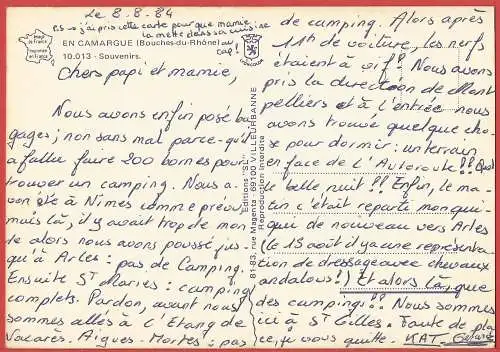 Le 8.8.84
ai pris cette carte pour que mamie
la mette dans sa cuisine
cap!
EN CAMARGUE (Bouches-du-Rhône)
10.013 - Souvenirs.
Chers papi et mamie,
Nous avons enfin posé ba
gages; non sans mal parce-qu'il
a fallu faire 200 bornes pour
trouver un camping. Nous a-
vons été à Nîmes comme prévu
mais là, il y avait trop de mon
de alors nous avons poussé jus-
qu'à Arles: pas de Camping.
Ensuite St Maries: camping
complets. Pardon, avant nous
sommes allés à l'Etang de
Vacarès. Aigues-Mortes: pas
Editions "SL"
81-83, rue Magenta 69100 VILLEURBANNE
Reproduction interdite
de camping. Alors après
11h de voiture, les nerfs
étaient à vif!! Nous avons
pris la direction de Mont
pelliers et à l'entrée nous
avons trouvé quelque cho
se pour dormir: un terrain
en face de l'Autoroute!! Quel
le belle nuit!! Enfin, le ma-
tin c'était reparti mon qui-
qui de nouveau vers Arles
(le 15 août il y a une représenta-
tion de dressage avec chevaux
andalous!) Et alors là, que
des camping!!! Nous sommes
ici à St Gilles. Faute de pla
ce, je vous quitte. KAT